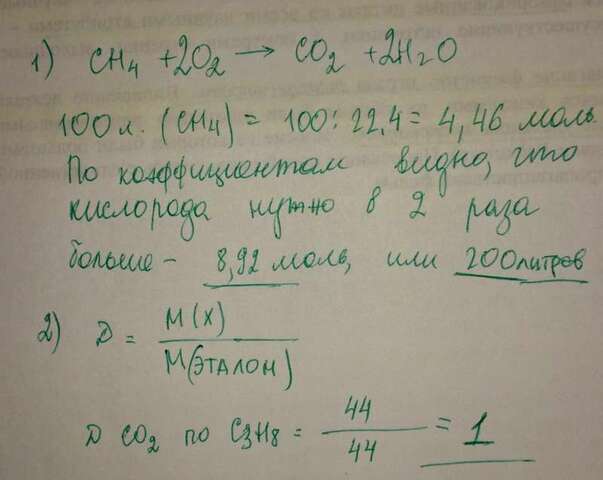 1) CH4 + 2O2 → CO2 + 2H2O
100 л. (CH4) = 100 : 22,4 = 4,46 моль.
По коэффициентам видно, что
кислорода нужно в 2 раза
больше - 8,92 моль, или 200 литров
2) D = M(X) / M(ЭТАЛОН)
D CO2 по C3H8 = 44 / 44 = 1